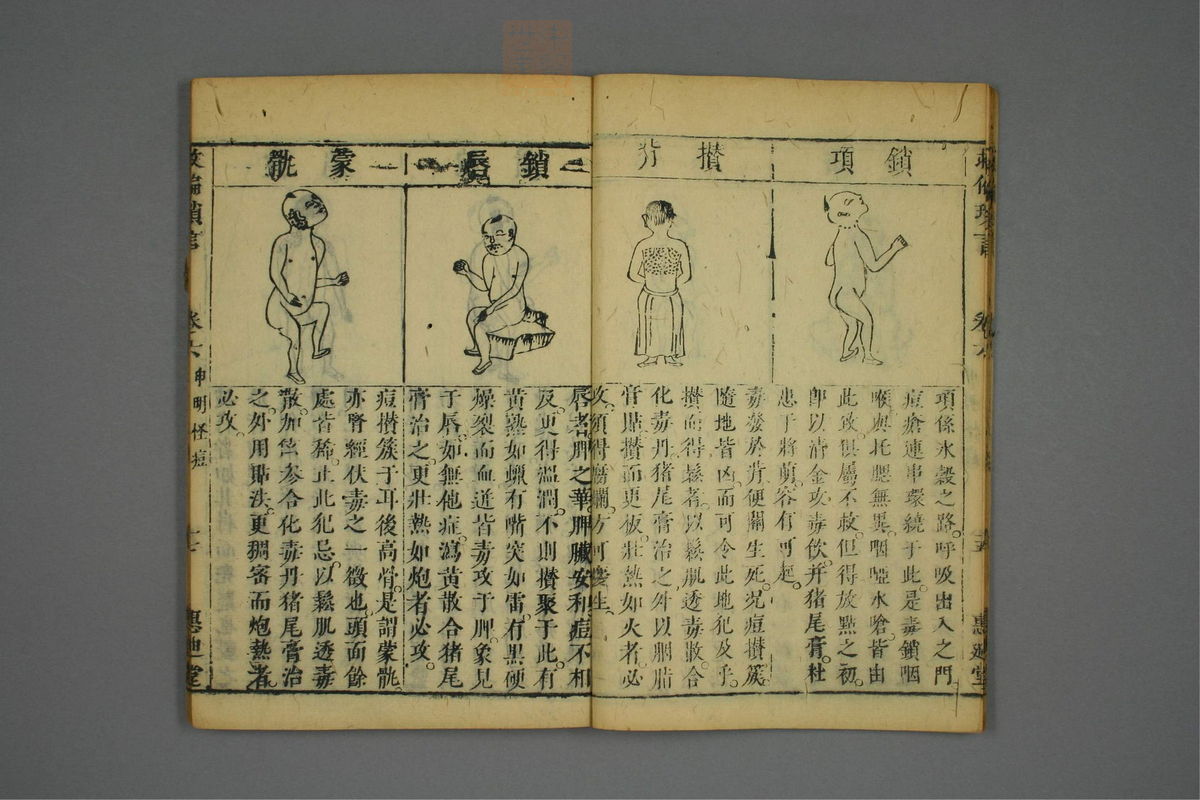 鎖項
項係水穀之路。呼吸出入之門
痘瘡連串環繞于此。是毒鎖咽
喉與托腮無異。咽啞水嗆。皆由
此致。俱屬不救。但得放點之初。
即以清金攻毒飲。幷猪尾膏。杜
患于將萌。容有可起。
攢背
毒發於背。便關生死。况痘攢簇。
隨地皆凶。而可令此地犯及乎。
攢而得鬆者。以鬆肌透毒散。合
化毒丹猪尾膏治之。外以胭脂
膏貼。攢而更板。壯熱如火者。必
攻。須得潛爛。方可慶生。
鎖唇
唇者脾之華。脾臟安和。痘不相
反。更得溫潤。不則攢聚于此。有
黃熟如蠟。有嘴突如雷。有黑硬
燥裂而血迸。皆毒攻于脾。象見
于唇。如無他症。瀉黃散合猪尾
膏治之。更壯熱如炮者必攻。
蒙骩
痘攢簇于耳後高骨。是謂蒙骩。
亦腎經伏毒之一徵也。頭面餘
處皆稀。止此犯忌。以鬆肌透毒
散。加參合化毒丹猪尾膏治
之。外用貼法。更稠密而炮熱者。
必攻。
卷六
申明怪痘
惠迪堂